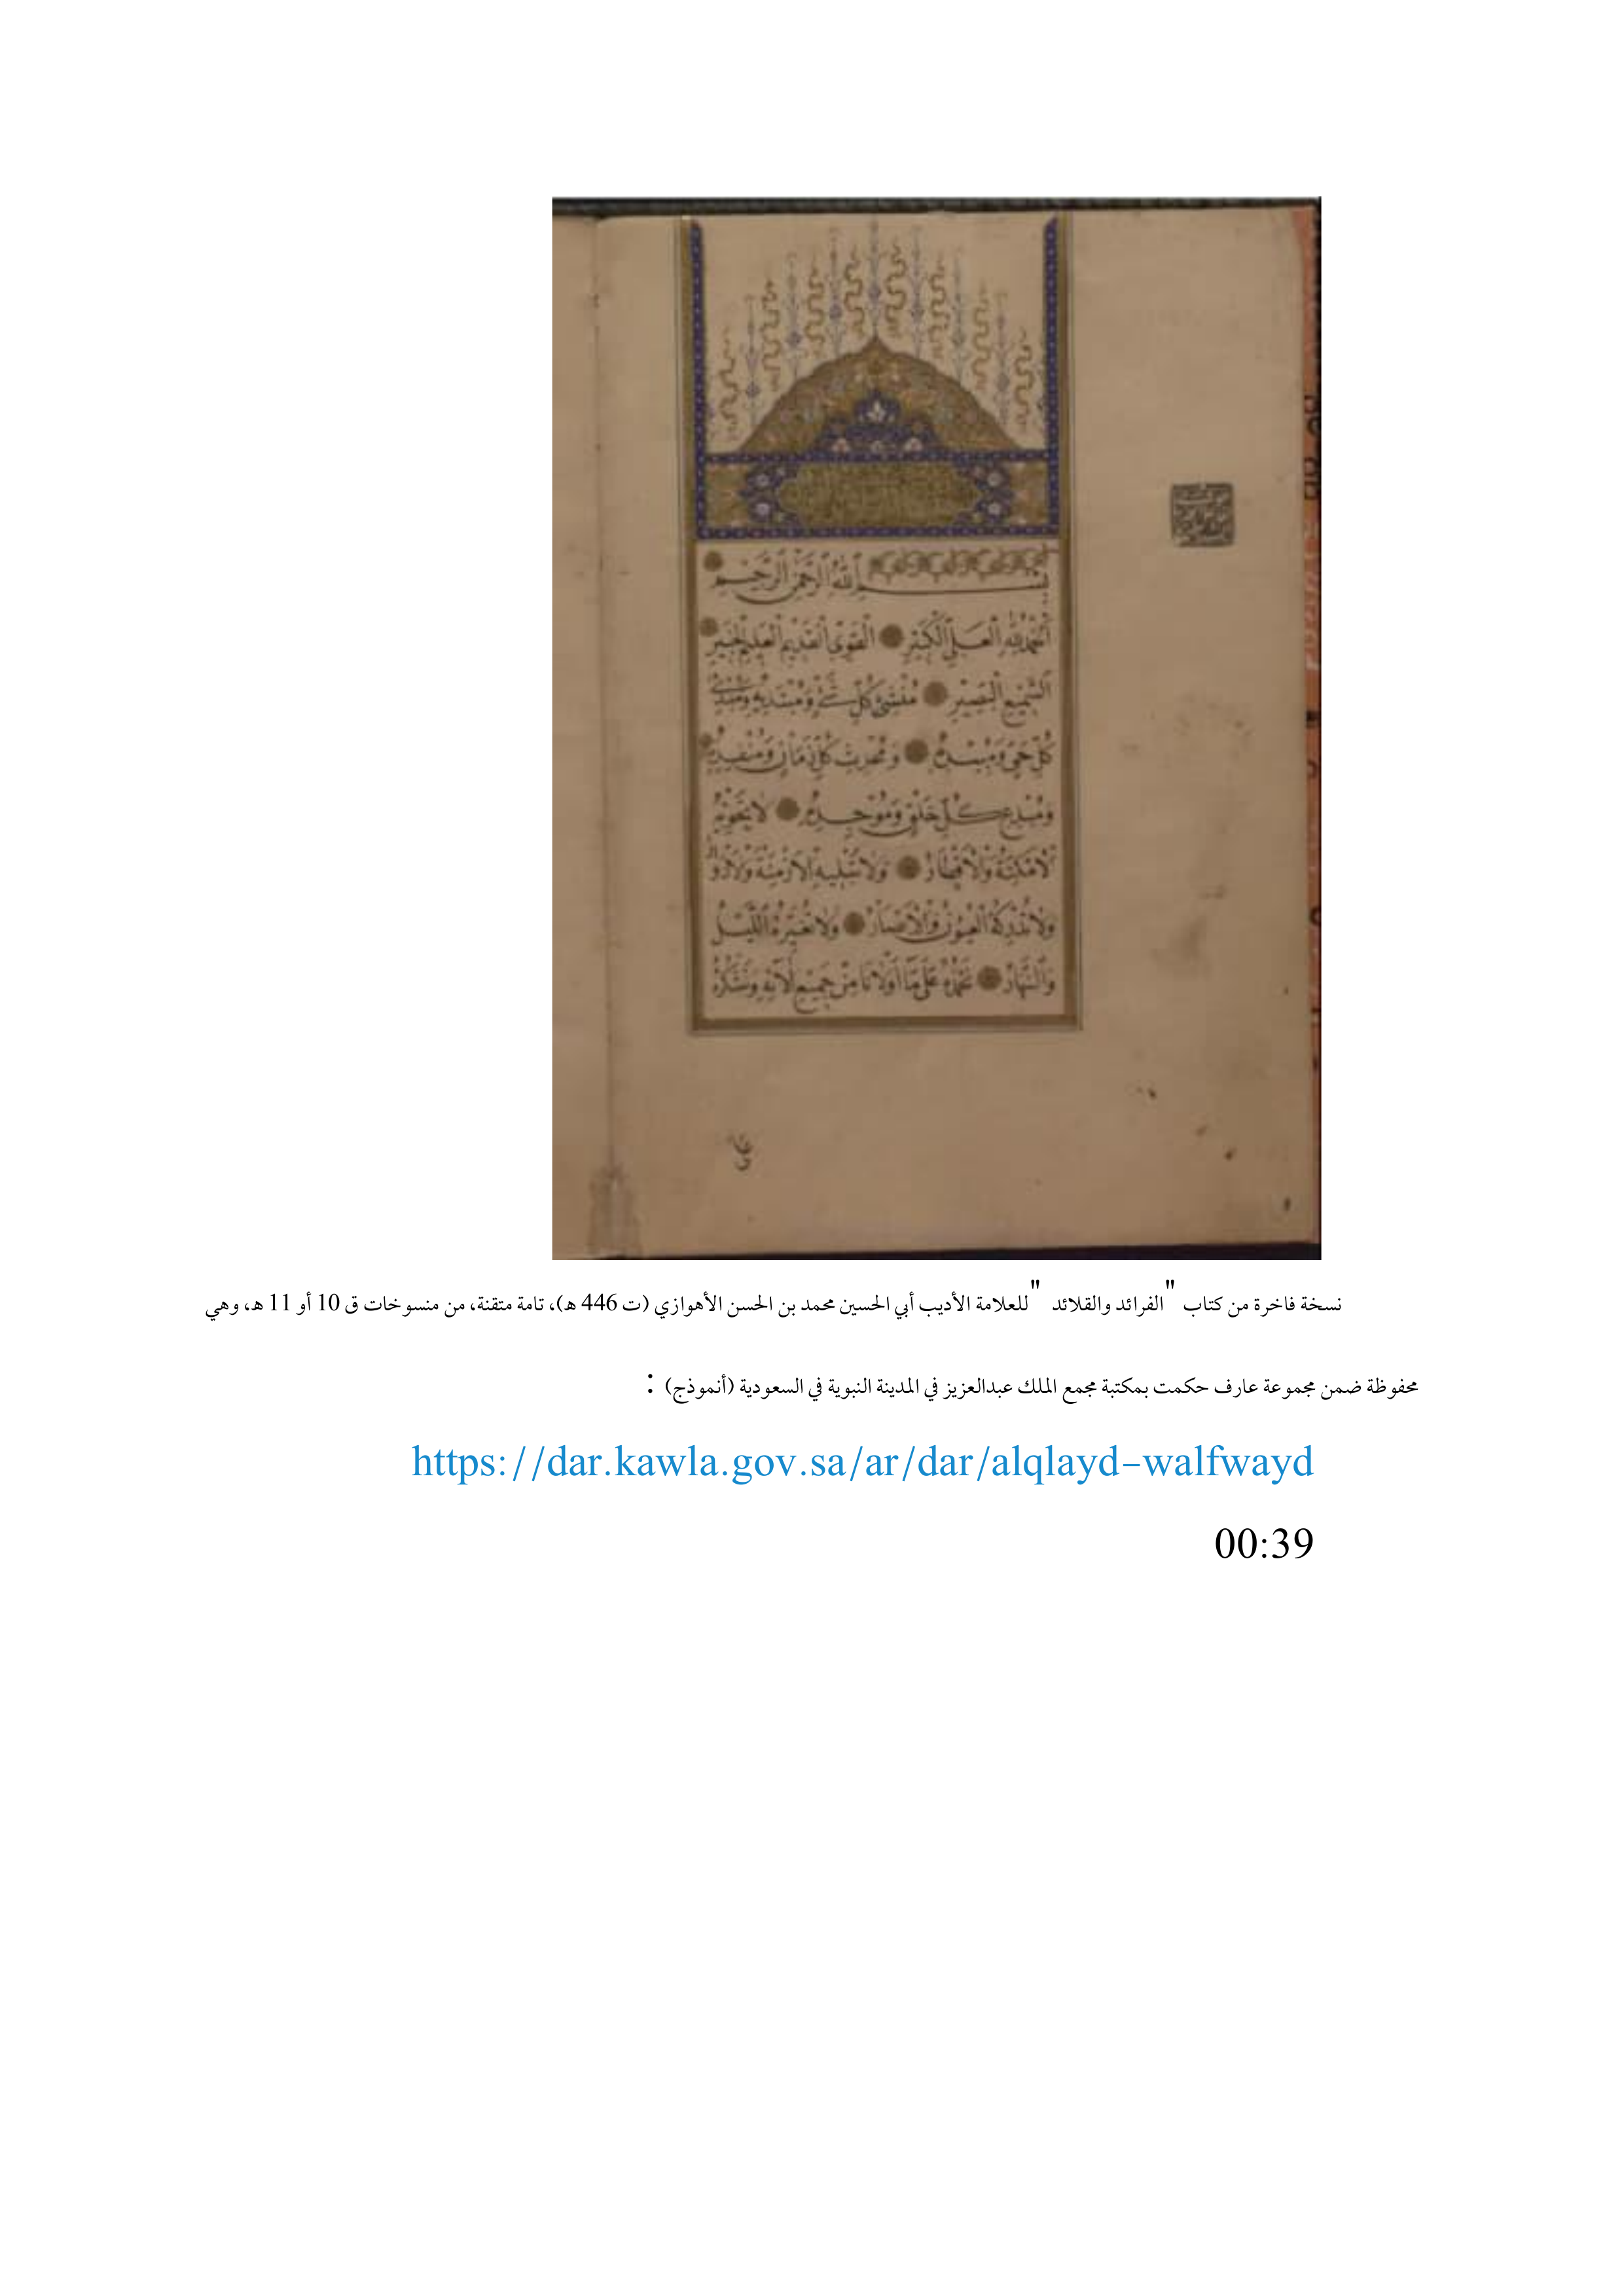 بسم الله الرحمن الرحيم
الحمد لله العلي الكبير القوي القديم العليم الخبير
السميع البصير منشئ كل شيء ومبتديه
كل حي ومحدث كل زمان
ومبدع كل خلق وموجده لا تحويه
الأمكنة والأقطار ولا تبليه الأزمنة ولا
ولا تدركه العيون والأبصار ولا تغيره الليل
والنهار نحمده على ما أولانا من جميع آلائه ونشكره
نسخة فاخرة من كتاب "الفرائد والقلائد" للعلامة الأديب أبي الحسين محمد بن الحسن الأهوازي (ت 446 هـ)، تامة متقنة، من منسوخات ق 10 أو 11 هـ، وهي
محفوظة ضمن مجموعة عارف حكمت بمكتبة مجمع الملك عبدالعزيز في المدينة النبوية في السعودية (أنموذج) :
https://dar.kawla.gov.sa/ar/dar/alqlayd-walfwayd
00:39